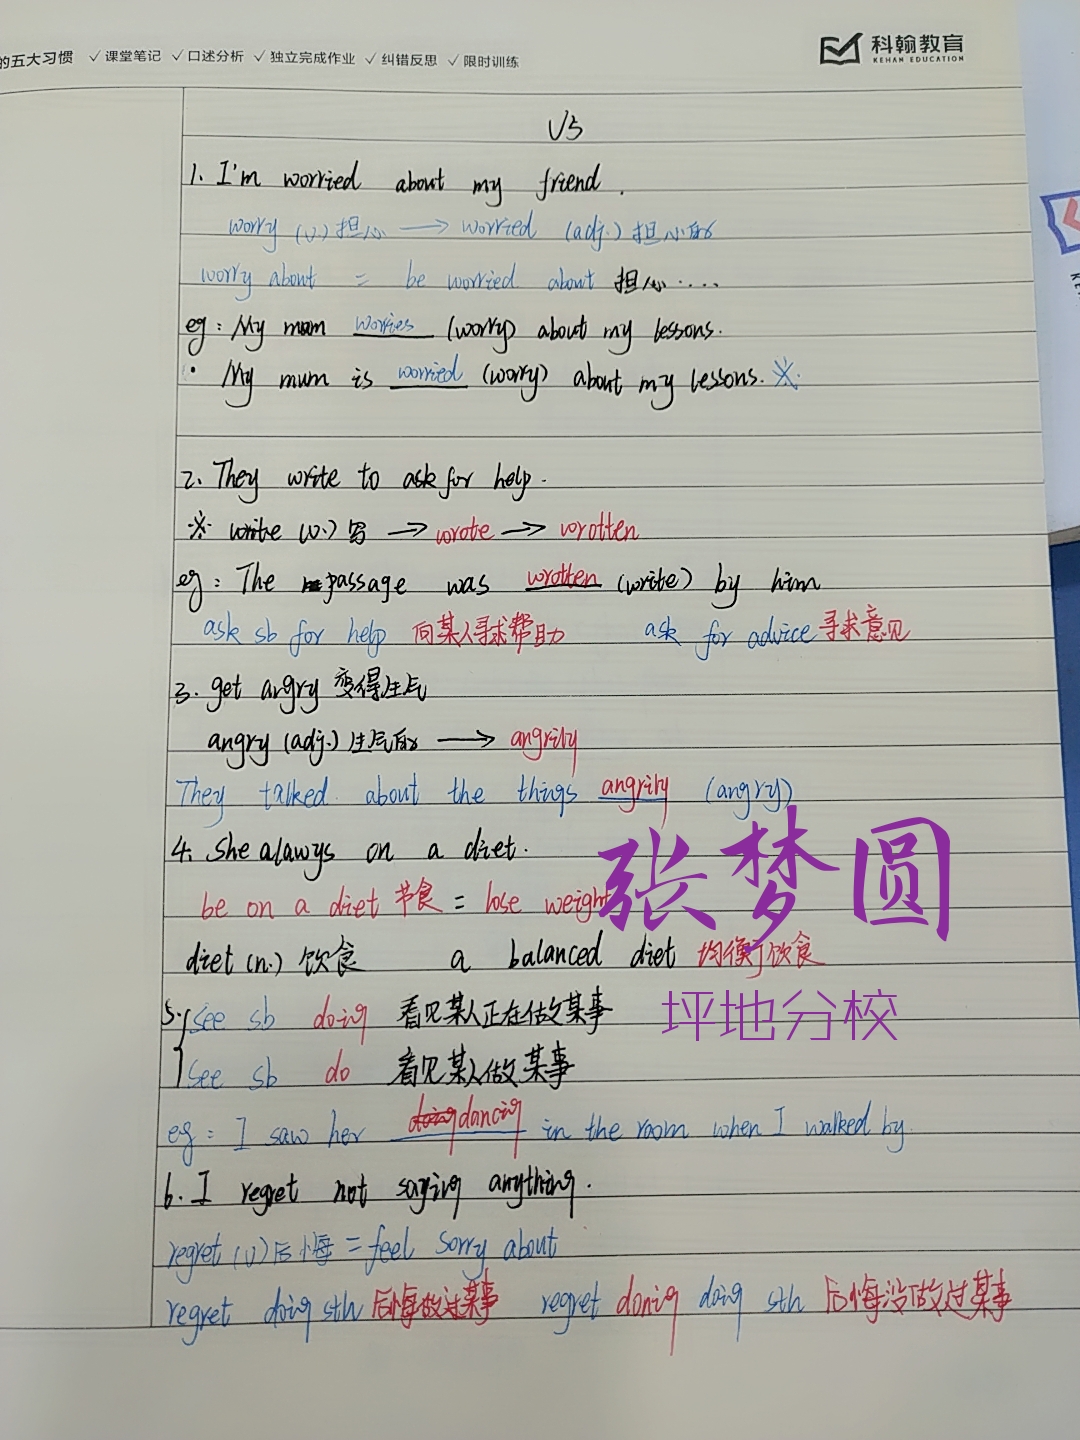 的五大习惯 ✓课堂笔记 ✓口述分析 ✓独立完成作业 ✓纠错反思 ✓限时训练
科翰教育
KEHAN EDUCATION
U5
1. I'm worried about my friend.
worry (v.) 担心 → worried (adj.) 担心的
worry about = be worried about 担心....
eg: My mum worries (worry) about my lessons.
· My mum is worried (worry) about my lessons. ※
2. They write to ask for help.
※ write (v.) 写 → wrote → wrotten
eg: The passage was wrotten (write) by him
ask sb for help 向某人寻求帮助 ask for advice 寻求意见
3. get angry 变得生气
angry (adj.) 生气的 → angrily
They talked about the things angrily (angry)
4. She alawys on a diet.
be on a diet 节食 = lose weight
张梦圆
diet (n.) 饮食 a balanced diet 均衡饮食
5. see sb doing 看见某人正在做某事
坪地分校
see sb do 看见某人做某事
eg: I saw her doing dancing in the room when I walked by.
6. I regret not saying anything.
regret (v) 后悔 = feel sorry about
regret doing sth 后悔做过某事 regret doing sth 后悔没做过某事